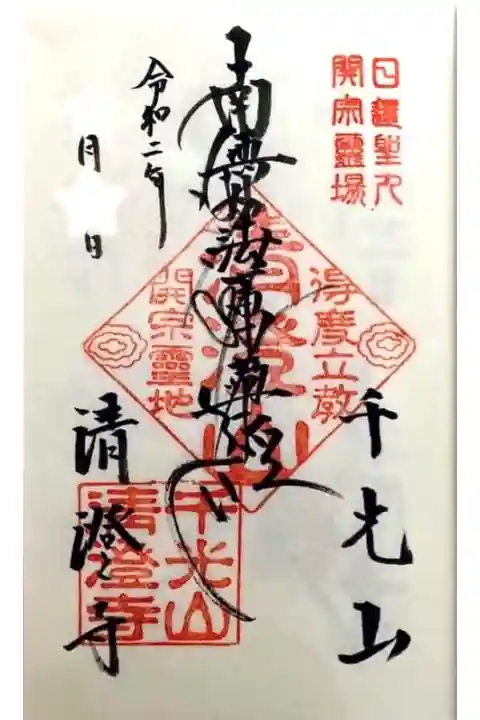 日蓮聖人
開宗靈場
千光山
南無妙法蓮華経
得度立教
清澄山
開宗靈地
千光山
清澄寺
令和二年
月 日
清澄寺